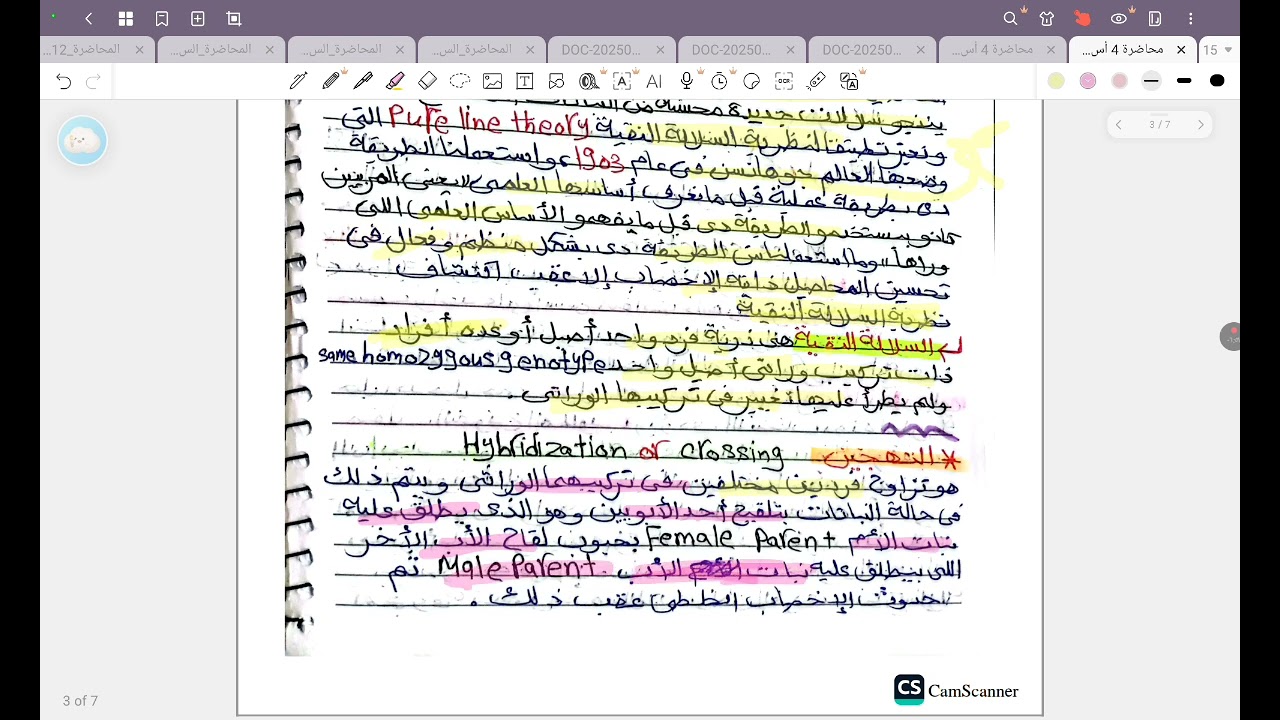 المحاضرة_12...
المحاضرة_الس...
المحاضرة_الس...
المحاضرة_الس...
DOC-20250...
DOC-20250...
DOC-20250...
محاضرة 4 أس...
محاضرة 4 أس...
15
3 / 7
ينتجو سلالات جديدة محسنة من
وتعتبر تطبيقا لنظرية السلالة النقية Pure line theory التي
وضعها العالم جوهانسن في عام 1903، واستعملنا الطريقة
دى بطريقة عملية قبل ما نعرف أساسها العلمي "يعني المربيين
كانو بيستخدمو الطريقة دى قبل ما يفهمو الأساس العلمي اللي
وراها" وما استعملناش الطريقة دى بشكل منظم وفعال في
تحسين المحاصيل ذاتية الإخصاب إلا عقب اكتشاف
نظرية السلالة النقية
السلالة النقية هي ذرية فرد واحد أصيل أو عدة أفراد
ذات تركيب وراثي أصيل واحد same homozygous genotype
ولم يطرأ عليها تغيير في تركيبها الوراثي.
* التهجين Hybridization or crossing
هو تزاوج فردين مختلفين في تركيبهما الوراثي ويتم ذلك
في حالة النباتات بتلقيح أحد الأبوين وهو الذي يطلق عليه
نبات الأم Female Parent بحبوب لقاح الأب الآخر
اللي بيطلق عليه نبات الأب Male Parent ثم
حدوث الإخصاب الخلطي عقب ذلك.
CS CamScanner
3 of 7